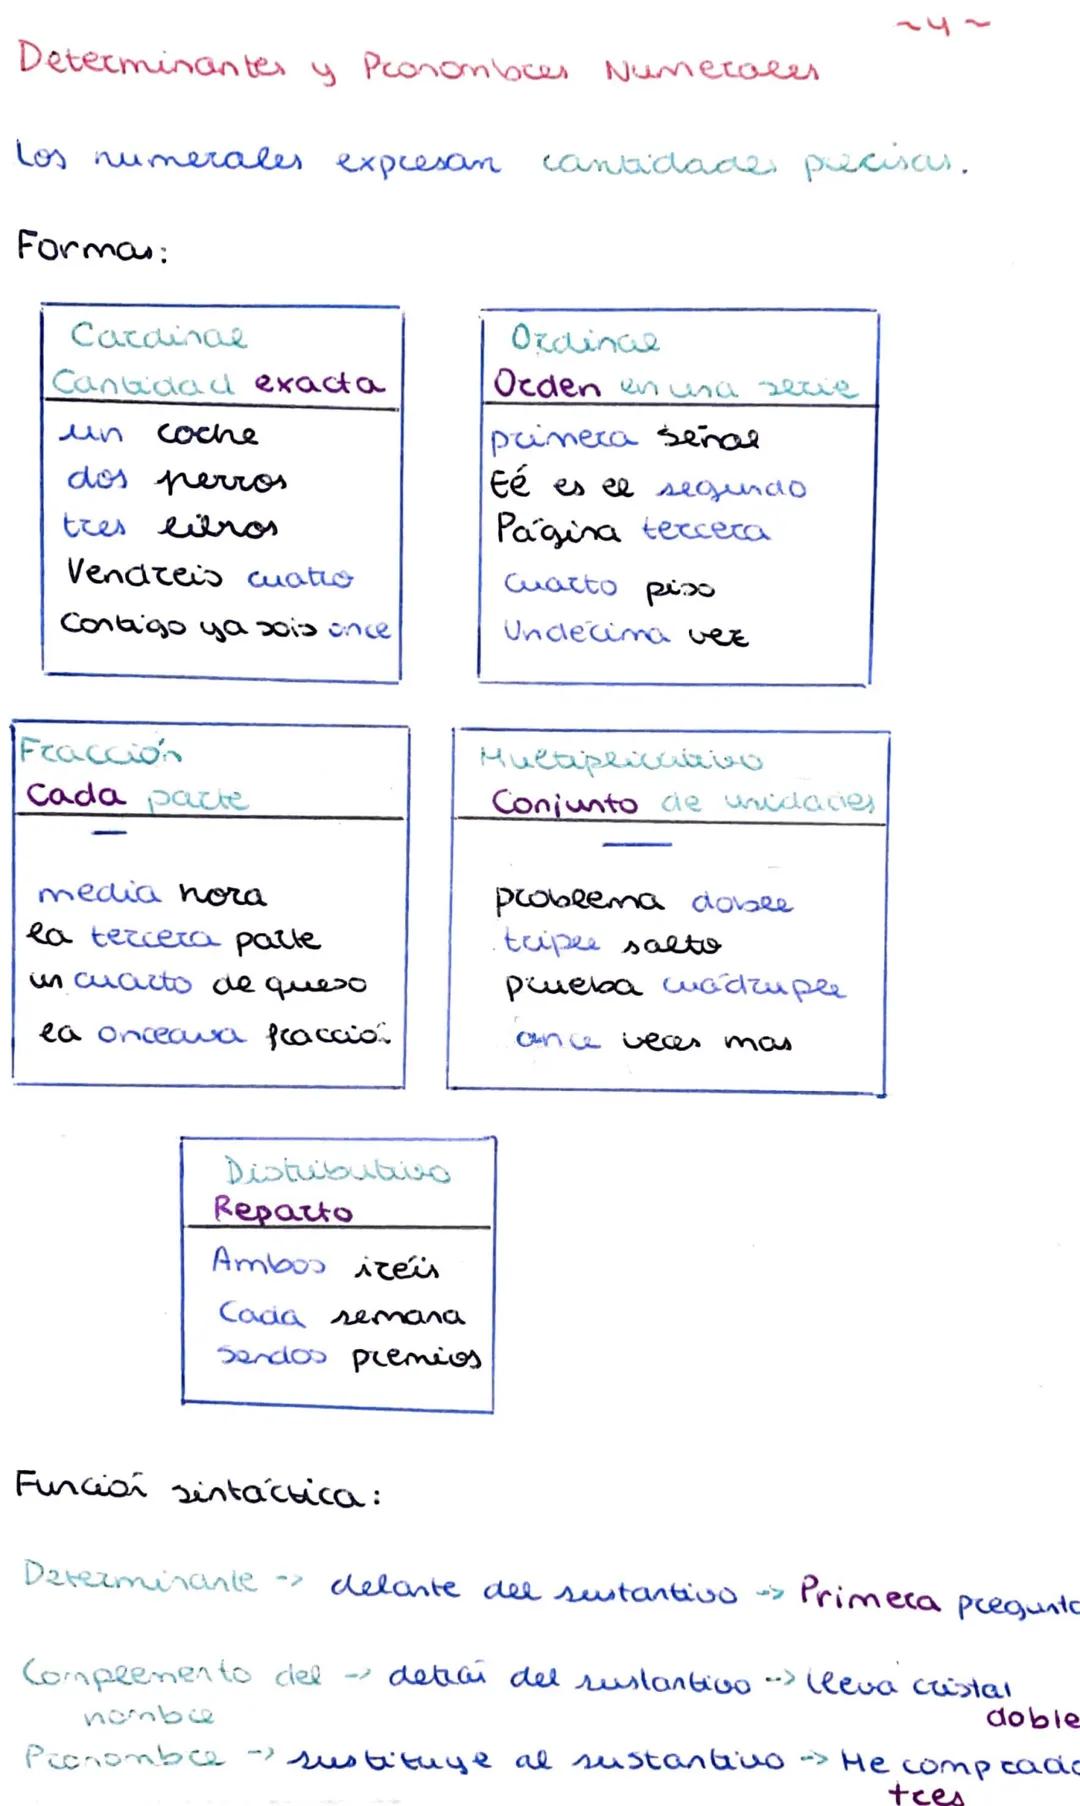 ~4~
Determinantes y Pronombres Numerales
Los numerales expresan cantidades precisas.
Formas:
Cardinal
Cantidad exacta
un coche
dos perros
tres litros
Vendreis cuatro
Contigo ya sois once
Ordinal
Orden en una serie
primera señal
Él es el segundo
Página tercera
cuarto piso
Undécima vez
Fracción
Cada parte
—
media hora
la tercera parte
un cuarto de queso
la onceava fracción
Multiplicativo
Conjunto de unidades
—
problema doble
triple salto
prueba cuádruple
once veces mas
Distributivo
Reparto
Ambos iréis
Cada semana
Sendos premios
Función sintáctica:
Determinante -> delante del sustantivo -> Primera pregunta
Complemento del -> detrás del sustantivo -> lleva cristal
nombre doble
Pronombre -> sustituye al sustantivo -> He comprado
tres